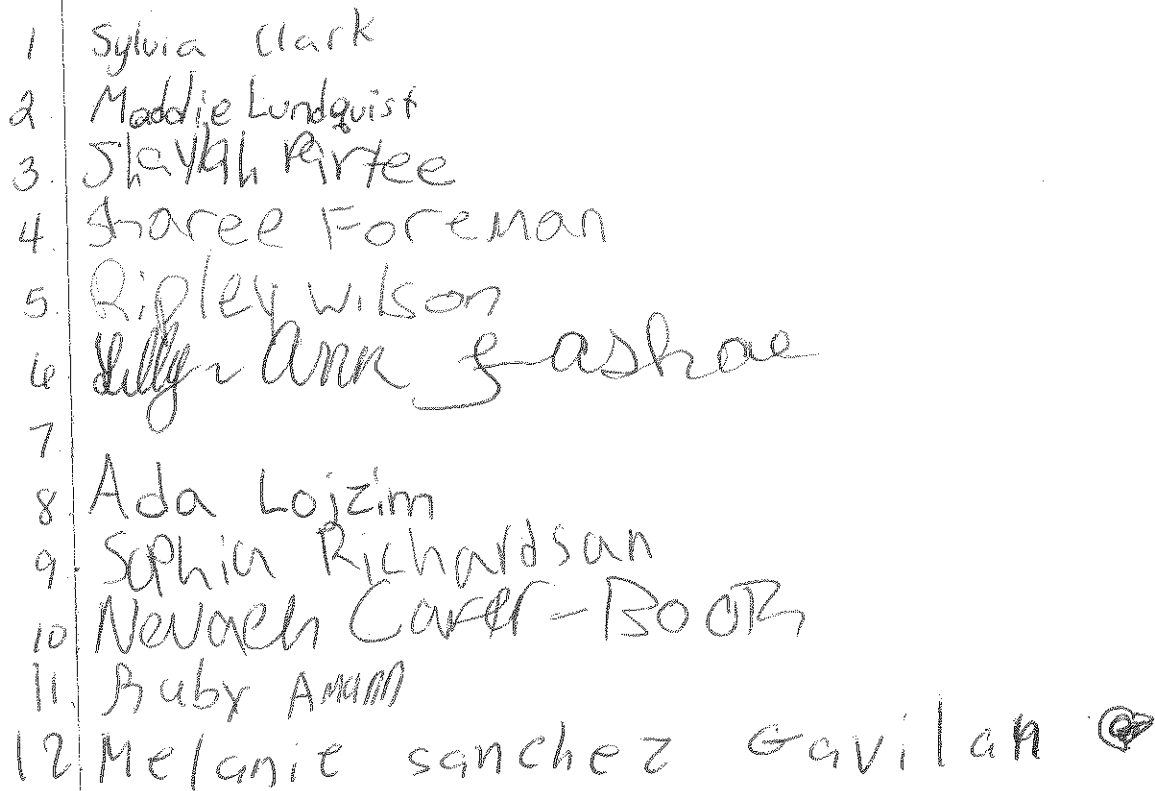 1 Sylvia Clark
2 Maddie Lundquist
3. Shaylah Partee
4. Sharee Foreman
5. Ripley Wilson
6 Lilly-Ann
7
8 Ada Lojzim
9. Sophia Richardson
10 Nevaeh Carter-Booth
11. Ruby
12 Melanie sanchez Gavilan